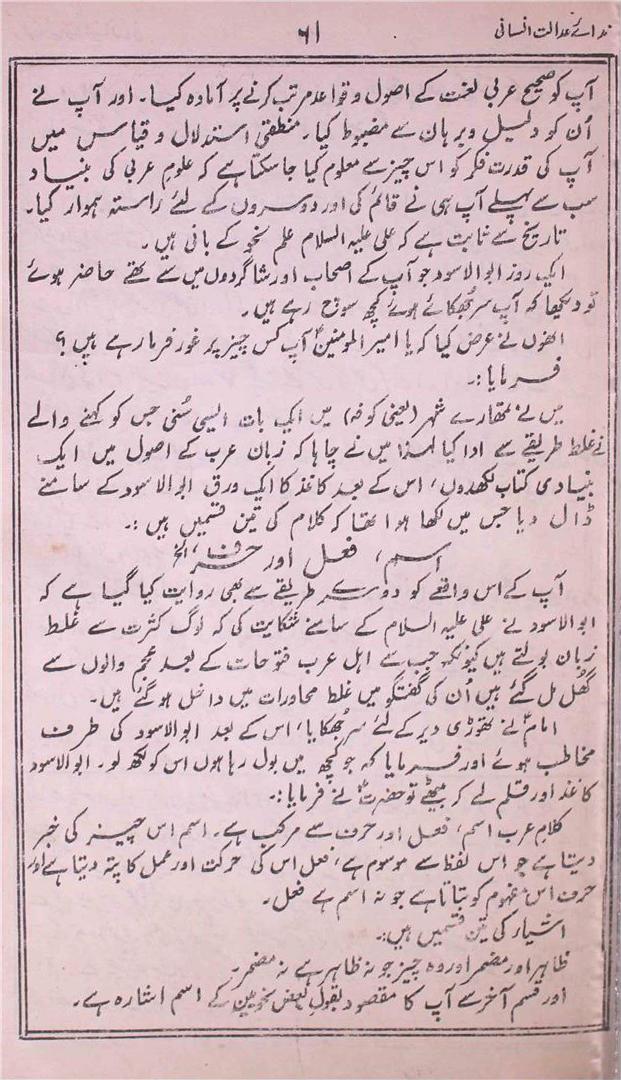 ندائے عدالت انسانی
۶۱
آپ کو صحیح عربی لغت کے اصول و قواعد مرتب کرنے پر آمادہ کیا۔ اور آپ نے
اُن کو دلیل و برہان سے مضبوط کیا۔ منطقی استدلال و قیاس میں
آپ کی قدرت فکر کو اس چیز سے معلوم کیا جا سکتا ہے کہ علومِ عربی کی بنیاد
سب سے پہلے آپ ہی نے قائم کی اور دوسروں کے لئے راستہ ہموار کیا۔
تاریخ سے ثابت ہے کہ علی علیہ السلام علم نحو کے بانی ہیں۔
ایک روز ابوالاسود جو آپ کے اصحاب اور شاگردوں میں سے تھے حاضر ہوئے
تو دیکھا کہ آپ سر جُھکائے ہوئے کچھ سوچ رہے ہیں۔
انھوں نے عرض کیا کہ یا امیر المومنینؑ آپ کس چیز پر غور فرما رہے ہیں؟
فرمایا:۔
میں نے تمھارے شہر (یعنی کوفہ) میں ایک بات ایسی سُنی جس کو کہنے والے
نے غلط طریقے سے ادا کیا لہٰذا میں نے چاہا کہ زبان عرب کے اصول میں ایک
بنیادی کتاب لکھدوں، اس کے بعد کاغذ کا ایک ورق ابوالاسود کے سامنے
ڈال دیا جس میں لکھا ہوا تھا کہ کلام کی تین قسمیں ہیں:۔
اسم، فعل اور حرف الخ
آپ کے اس واقعے کو دوسرے طریقے سے بھی روایت کیا گیا ہے کہ
ابوالاسود نے علی علیہ السلام کے سامنے شکایت کی کہ لوگ کثرت سے غلط
زبان بولتے ہیں کیونکہ جب سے اہل عرب فتوحات کے بعد عجم والوں سے
گُھل مل گئے ہیں اُن کی گفتگو میں غلط محاورات میں داخل ہو گئے ہیں۔
امامؑ نے تھوڑی دیر کے لئے سر جُھکایا، اس کے بعد ابوالاسود کی طرف
مخاطب ہوئے اور فرمایا کہ جو کچھ میں بول رہا ہوں اس کو لکھ لو۔ ابوالاسود
کاغذ اور قلم لے کر بیٹھے تو حضرتؑ نے فرمایا:۔
کلامِ عرب اسم، فعل اور حرف سے مرکب ہے۔ اسم اس چیز کی خبر
دیتا ہے جو اس لفظ سے موسوم ہے، فعل اس کی حرکت اور عمل کا پتہ دیتا ہے اور
حرف اس مفہوم کو بتاتا ہے جو نہ اسم ہے نہ فعل۔
اشیار کی تین قسمیں ہیں:۔
ظاہر اور مضمر اور وہ چیز جو نہ ظاہر ہے نہ مضمر۔
اور قسم آخر سے آپ کا مقصود بقول بعض نحویین کے اسم اشارہ ہے۔